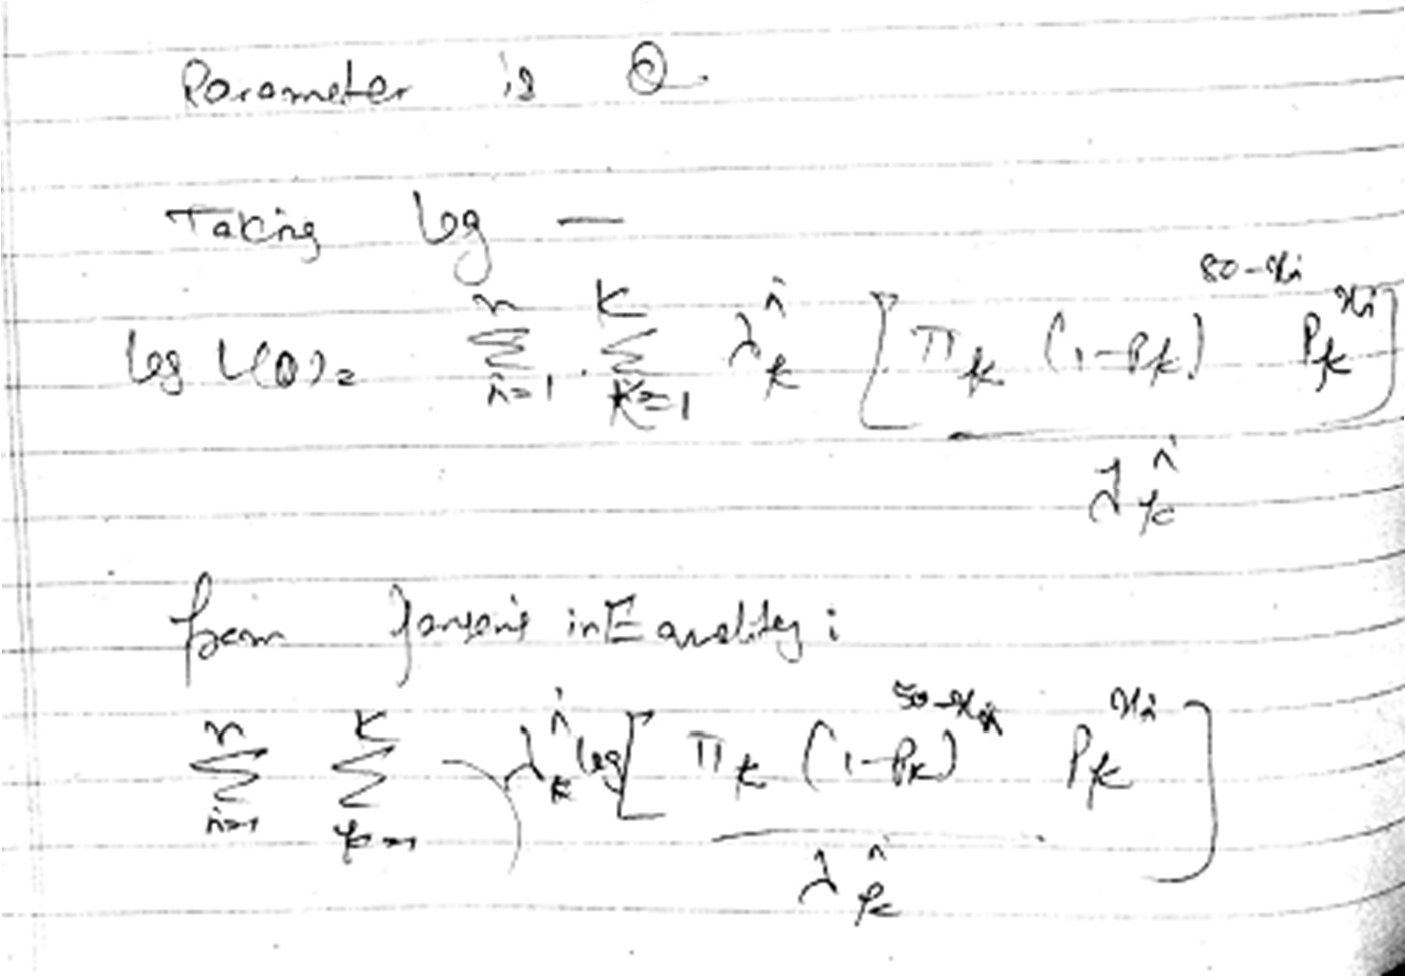 Parameter is θ.
Taking log —
log L(θ) = Σ_{i=1}^{n} · Σ_{k=1}^{K} λ_k^i [ π_k (1-P_k)^{50-x_i} P_k^{x_i} ] / λ_k^i
from Jensen's inEquality :
Σ_{i=1}^{n} Σ_{k=1}^{K} λ_k^i log [ π_k (1-P_k)^{50-x_i} P_k^{x_i} / λ_k^i ]